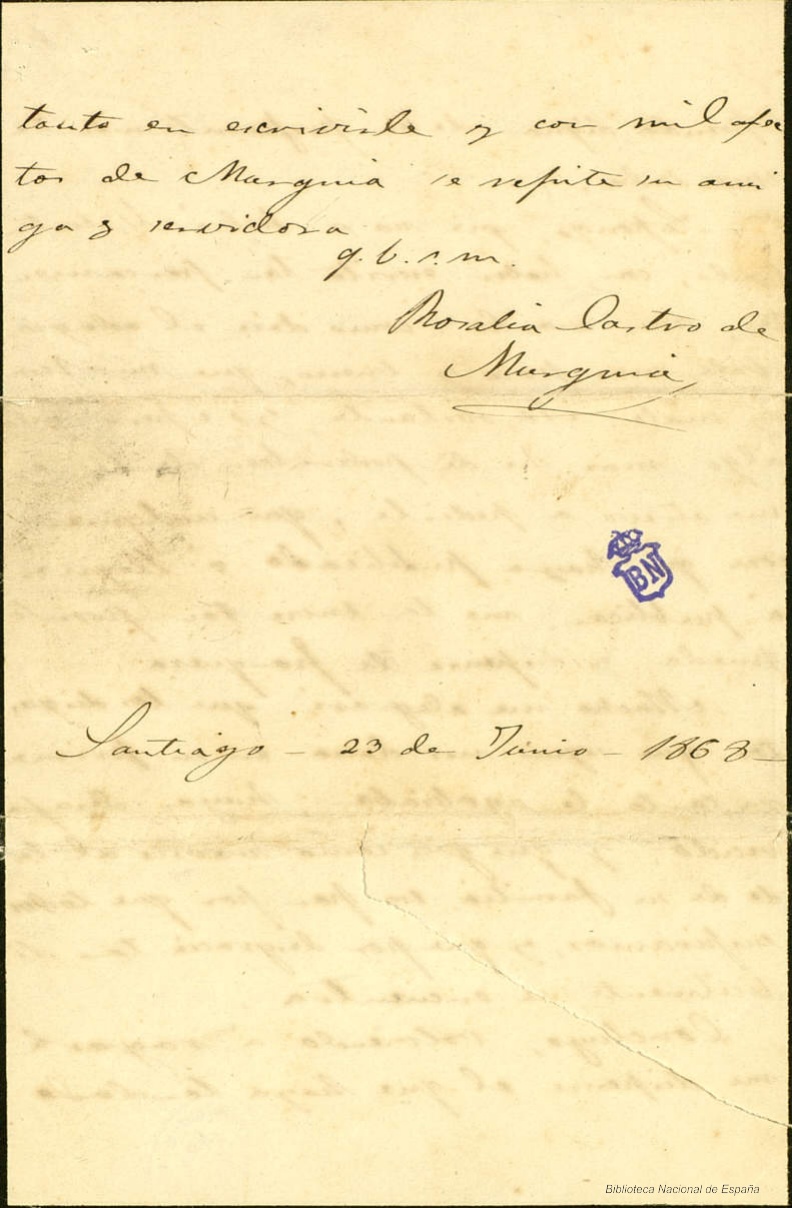 tanto en escrivirle y con mil afec
tos de Murguia se repite su ami
ga y servidora
q. b. s. m.
Rosalia Castro de
Murguia
BN
Santiago - 23 de Junio - 1868 -
Biblioteca Nacional de España